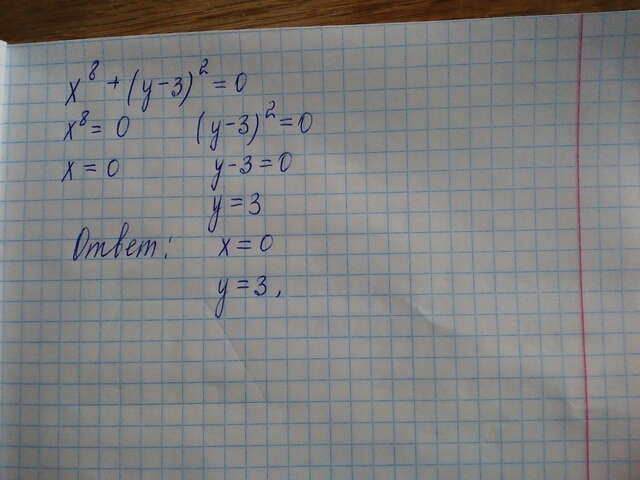 x⁸ + (y-3)² = 0
x⁸ = 0 (y-3)² = 0
x = 0 y-3 = 0
y = 3
Ответ: x = 0
y = 3,